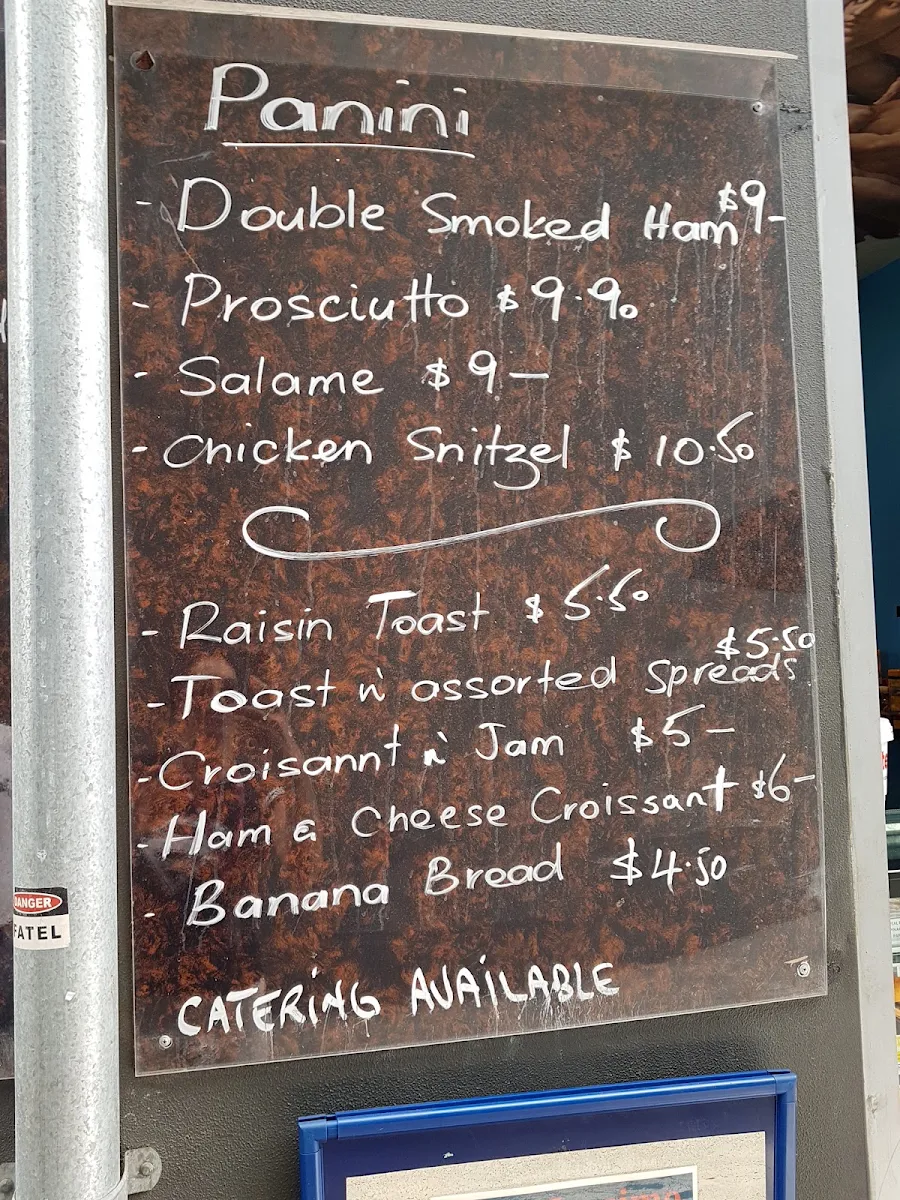 Panini
- Double Smoked Ham $9-
- Prosciutto $9.90
- Salame $9-
- Chicken Snitzel $10.50
- Raisin Toast $5.50
- Toast n' assorted Spreads $5.50
- Croisannt n' Jam $5-
- Ham & Cheese Croissant $6-
- Banana Bread $4.50
CATERING AVAILABLE
DANGER
FATEL